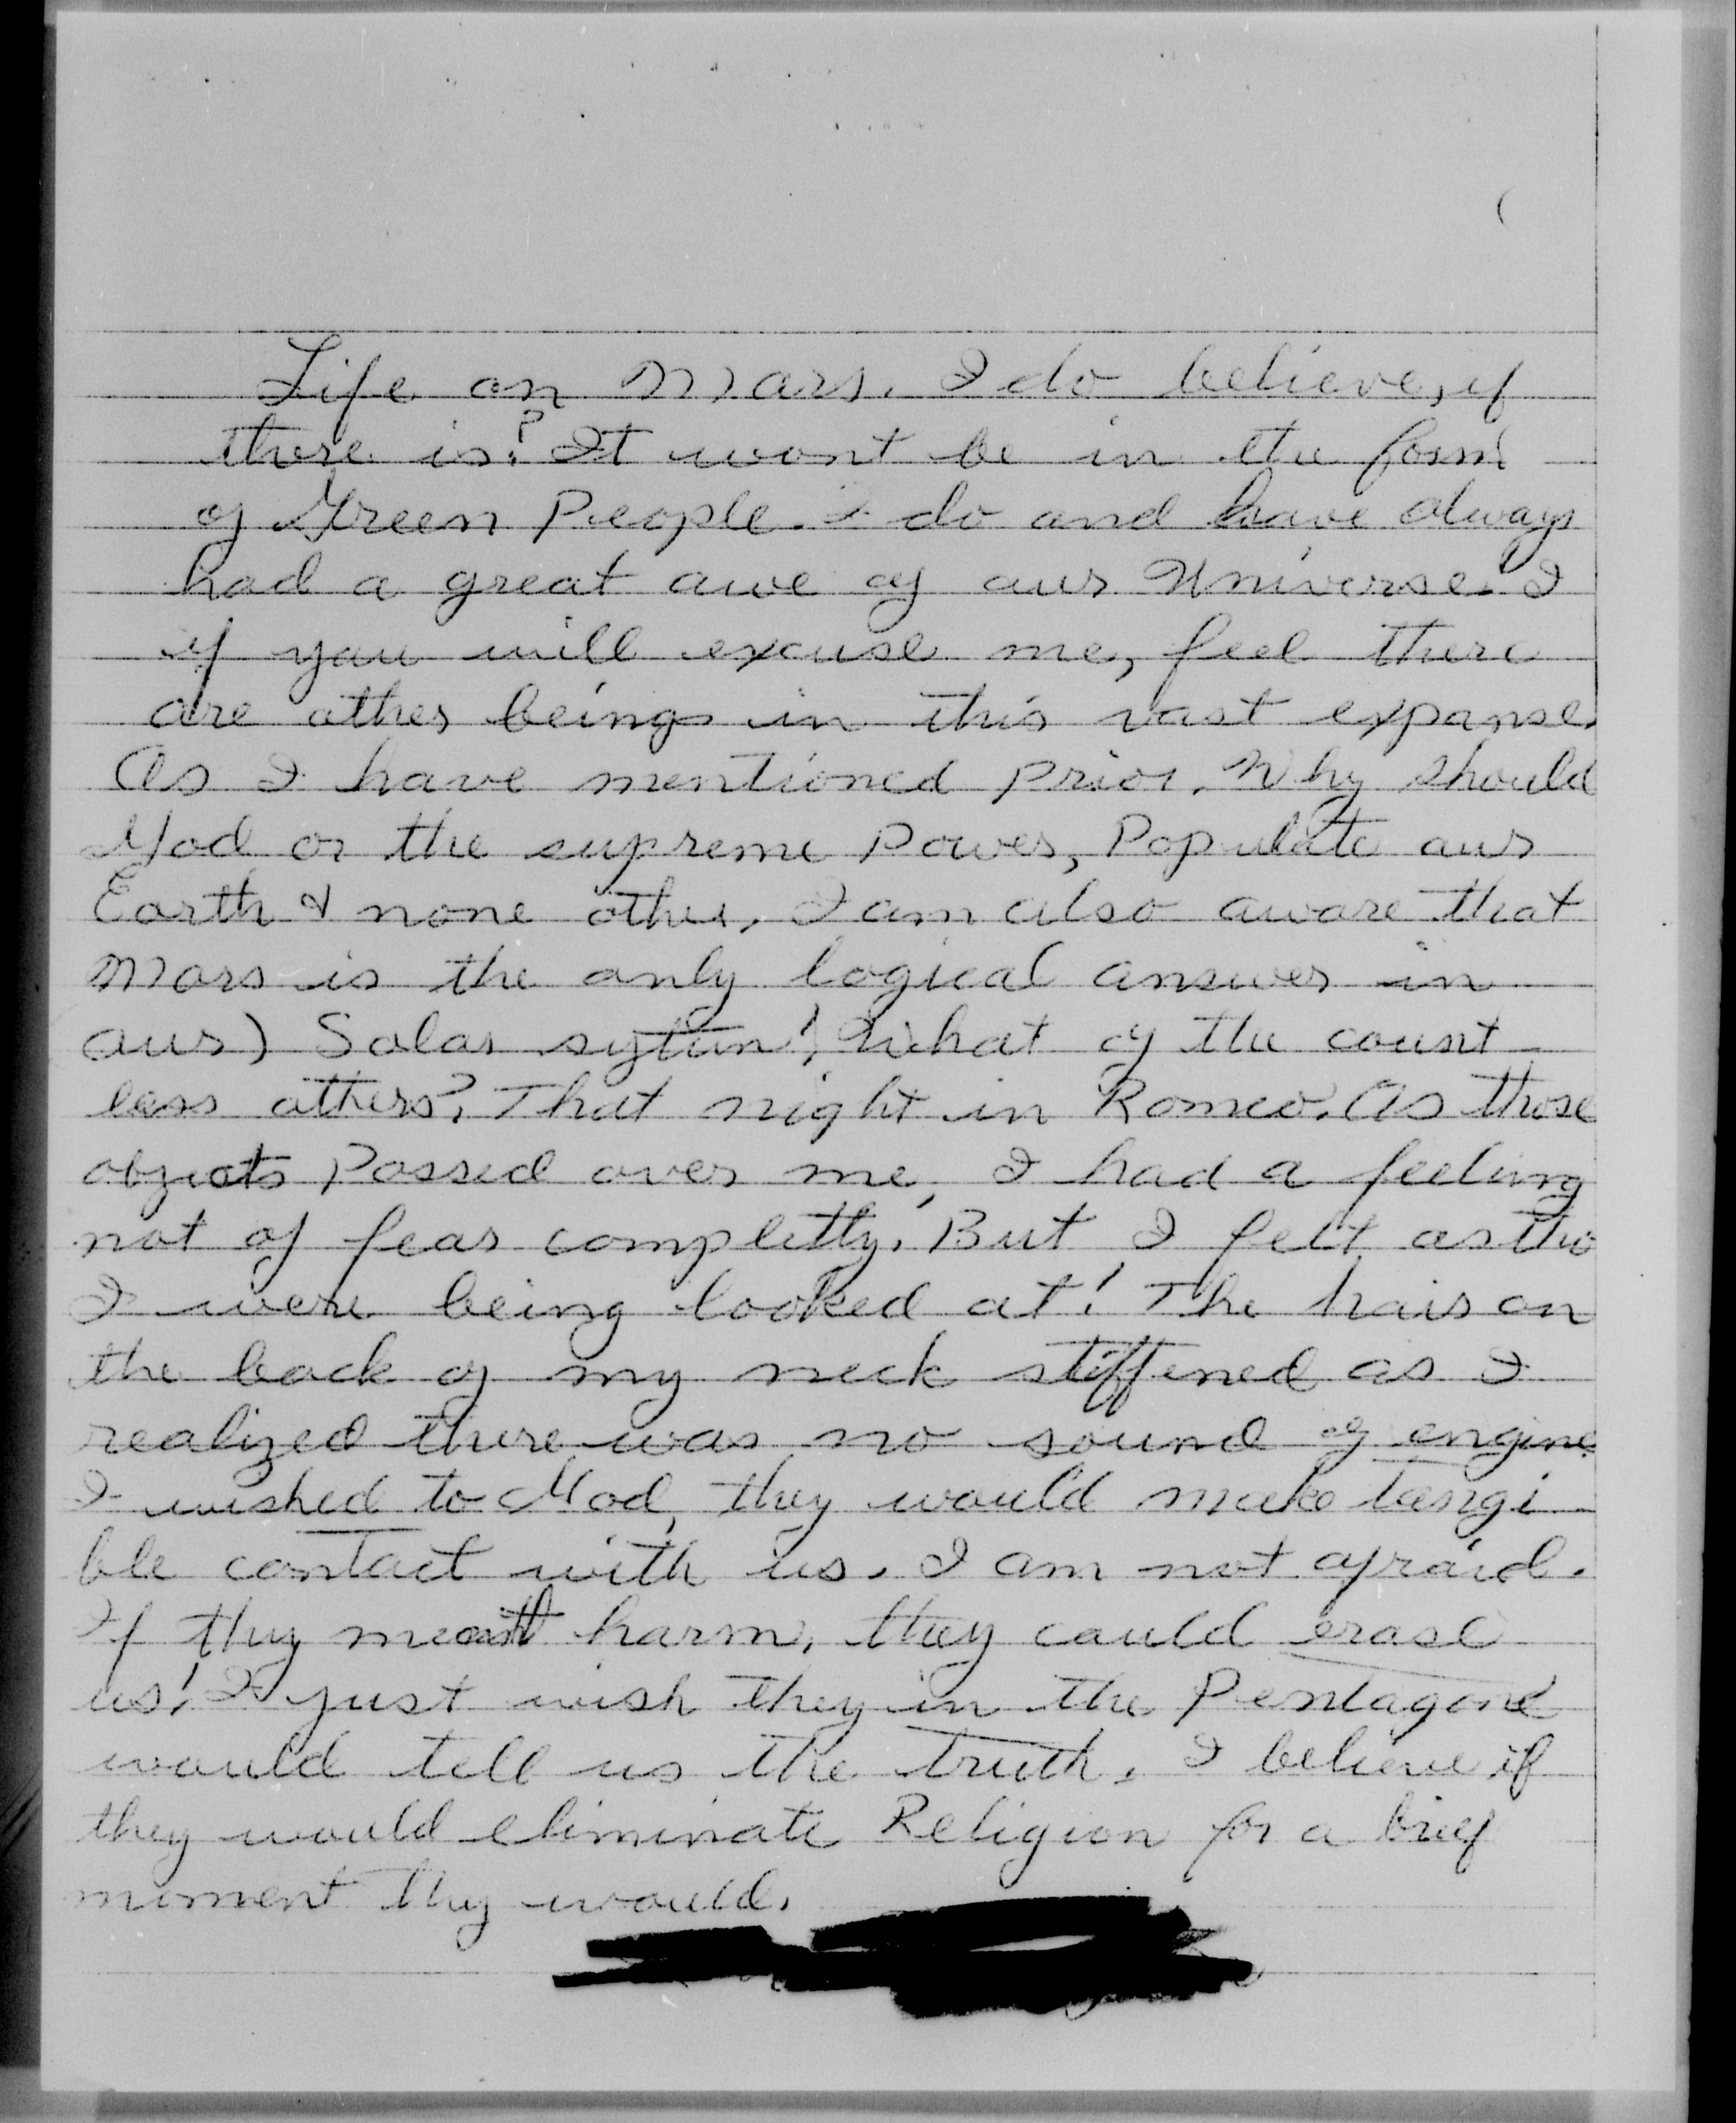 Life on Mars. I do believe, if
there is? It wont be in the form
of Green People. I do and have always
had a great awe of our Universe. I
if you will excuse me, feel there
are other beings in this vast expanse.
As I have mentioned prior. Why should
God or the supreme Power, Populate our
Earth & none other. I am also aware that
Mars is the only logical answer in
our) Solar sytem! What of the count
less others? That night in Romeo. As those
objects Passed over me, I had a feeling
not of fear completly. But I felt as tho
I were being looked at! The hair on
the back of my neck stiffened as I
realized there was no sound of engine
I wished to God, they would make tangi
ble contact with us. I am not afraid.
If they meant harm, they could erase
us! I just wish they in the Pentagone
would tell us the truth. I believe if
they would eliminate Religion for a brief
moment they would.